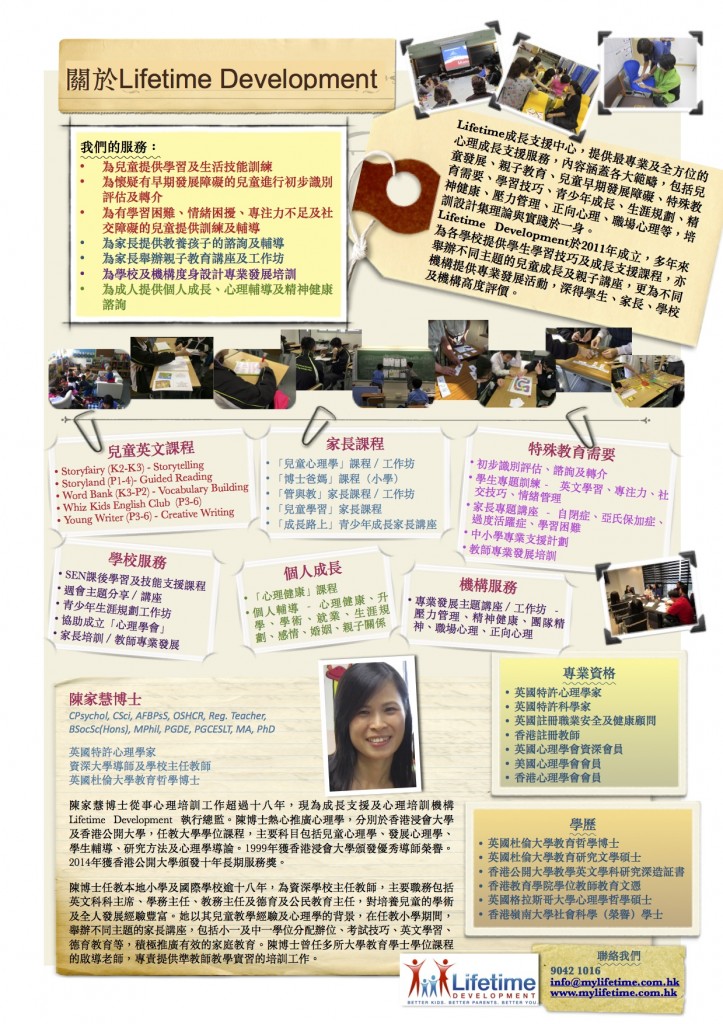 關於Lifetime Development
我們的服務：
• 為兒童提供學習及生活技能訓練
• 為懷疑有早期發展障礙的兒童進行初步識別
評估及轉介
• 為有學習困難、情緒困擾、專注力不足及社
交障礙的兒童提供訓練及輔導
• 為家長提供教養孩子的諮詢及輔導
• 為家長舉辦親子教育講座及工作坊
• 為學校及機構度身設計專業發展培訓
• 為成人提供個人成長、心理輔導及精神健康
諮詢
Lifetime成長支援中心，提供最專業及全方位的
心理成長支援服務，內容涵蓋各大範疇，包括兒
童發展、親子教育、兒童早期發展障礙、特殊教
育需要、學習技巧、青少年成長、生涯規劃、精
神健康、壓力管理、正向心理、職場心理等，培
訓設計集理論與實踐於一身。
Lifetime Development於2011年成立，多年來
為各學校提供學生學習技巧及成長支援課程，亦
舉辦不同主題的兒童成長及親子講座，更為不同
機構提供專業發展活動，深得學生、家長、學校
及機構高度評價。
兒童英文課程
• Storyfairy (K2-K3) - Storytelling
• Storyland (P1-4)- Guided Reading
• Word Bank (K3-P2) - Vocabulary Building
• Whiz Kids English Club (P3-6)
• Young Writer (P3-6) - Creative Writing
家長課程
• 「兒童心理學」課程 / 工作坊
• 「博士爸媽」課程（小學）
• 「管與教」家長課程 / 工作坊
• 「兒童學習」家長課程
• 「成長路上」青少年成長家長講座
特殊教育需要
• 初步識別評估、諮詢及轉介
• 學生專題訓練 - 英文學習、專注力、社
交技巧、情緒管理
• 家長專題講座 - 自閉症、亞氏保加症、
過度活躍症、學習困難
• 中小學專業支援計劃
• 教師專業發展培訓
學校服務
• SEN課後學習及技能支援課程
• 週會主題分享 / 講座
• 青少年生涯規劃工作坊
• 協助成立「心理學會」
• 家長培訓 / 教師專業發展
個人成長
• 「心理健康」課程
• 個人輔導 - 心理健康、升
學、學術、就業、生涯規
劃、感情、婚姻、親子關係
機構服務
• 專業發展主題講座 / 工作坊 -
壓力管理、精神健康、團隊精
神、職場心理、正向心理
陳家慧博士
CPsychol, CSci, AFBPsS, OSHCR, Reg. Teacher,
BSocSc(Hons), MPhil, PGDE, PGCESLT, MA, PhD
英國特許心理學家
資深大學導師及學校主任教師
英國杜倫大學教育哲學博士
陳家慧博士從事心理培訓工作超過十八年，現為成長支援及心理培訓機構
Lifetime Development 執行總監。陳博士熱心推廣心理學，分別於香港浸會大學
及香港公開大學，任教大學學位課程，主要科目包括兒童心理學、發展心理學、
學生輔導、研究方法及心理學導論。1999年獲香港浸會大學頒發優秀導師榮譽。
2014年獲香港公開大學頒發十年長期服務獎。
陳博士任教本地小學及國際學校逾十八年，為資深學校主任教師，主要職務包括
英文科科主席、學務主任、教務主任及德育及公民教育主任，對培養兒童的學術
及全人發展經驗豐富。她以其兒童教學經驗及心理學的背景，在任教小學期間，
舉辦不同主題的家長講座，包括小一及中一學位分配辦位、考試技巧、英文學習、
德育教育等，積極推廣有效的家庭教育。陳博士曾任多所大學教育學士學位課程
的啟導老師，專責提供準教師教學實習的培訓工作。
專業資格
• 英國特許心理學家
• 英國特許科學家
• 英國註冊職業安全及健康顧問
• 香港註冊教師
• 英國心理學會資深會員
• 美國心理學會會員
• 香港心理學會會員
學歷
• 英國杜倫大學教育哲學博士
• 英國杜倫大學教育研究文學碩士
• 香港公開大學教學英文學科研究深造証書
• 香港教育學院學位教師教育文憑
• 英國格拉斯哥大學心理學哲學碩士
• 香港嶺南大學社會科學（榮譽）學士
Lifetime
DEVELOPMENT
BETTER KIDS. BETTER PARENTS. BETTER YOU
聯絡我們
9042 1016
info@mylifetime.com.hk
www.mylifetime.com.hk